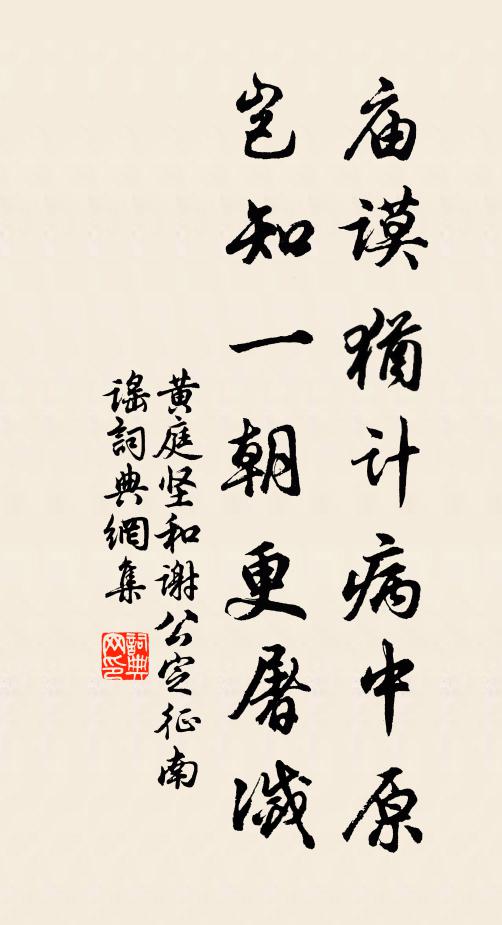 庙谟犹计病中原
岂知一朝更屠灭
黄庭坚和谢公定征南
谣詞典網集
詞典网印